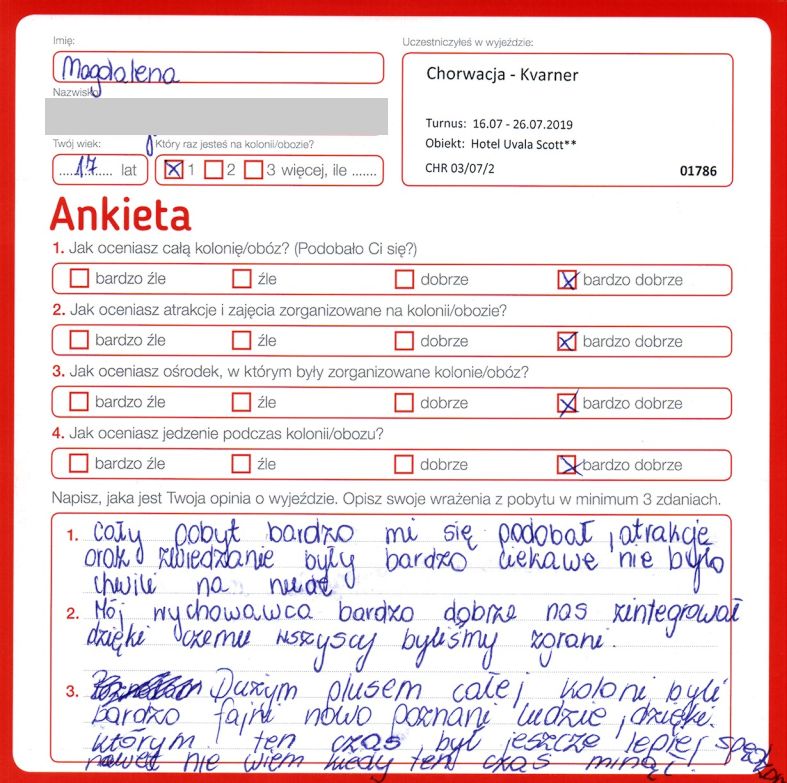 Imię:
Magdalena
Nazwisko
Twój wiek:
17 lat
Który raz jesteś na kolonii/obozie?
1 2 3 więcej, ile .......
Uczestniczyłeś w wyjeździe:
Chorwacja - Kvarner
Turnus: 16.07 - 26.07.2019
Obiekt: Hotel Uvala Scott**
CHR 03/07/2 01786
Ankieta
1. Jak oceniasz całą kolonię/obóz? (Podobało Ci się?)
bardzo źle źle dobrze bardzo dobrze
2. Jak oceniasz atrakcje i zajęcia zorganizowane na kolonii/obozie?
bardzo źle źle dobrze bardzo dobrze
3. Jak oceniasz ośrodek, w którym były zorganizowane kolonie/obóz?
bardzo źle źle dobrze bardzo dobrze
4. Jak oceniasz jedzenie podczas kolonii/obozu?
bardzo źle źle dobrze bardzo dobrze
Napisz, jaka jest Twoja opinia o wyjeździe. Opisz swoje wrażenia z pobytu w minimum 3 zdaniach.
1. Cały pobyt bardzo mi się podobał, atrakcje
oraz zwiedzanie były bardzo ciekawe nie było
chwili na nudę
2. Mój wychowawca bardzo dobrze nas zintegrował
dzięki czemu wszyscy byliśmy zgrani.
3. Dużym plusem całej koloni byli
bardzo fajni nowo poznani ludzie, dzięki
którym ten czas był jeszcze lepiej spędzony
nawet nie wiem kiedy ten czas minął!